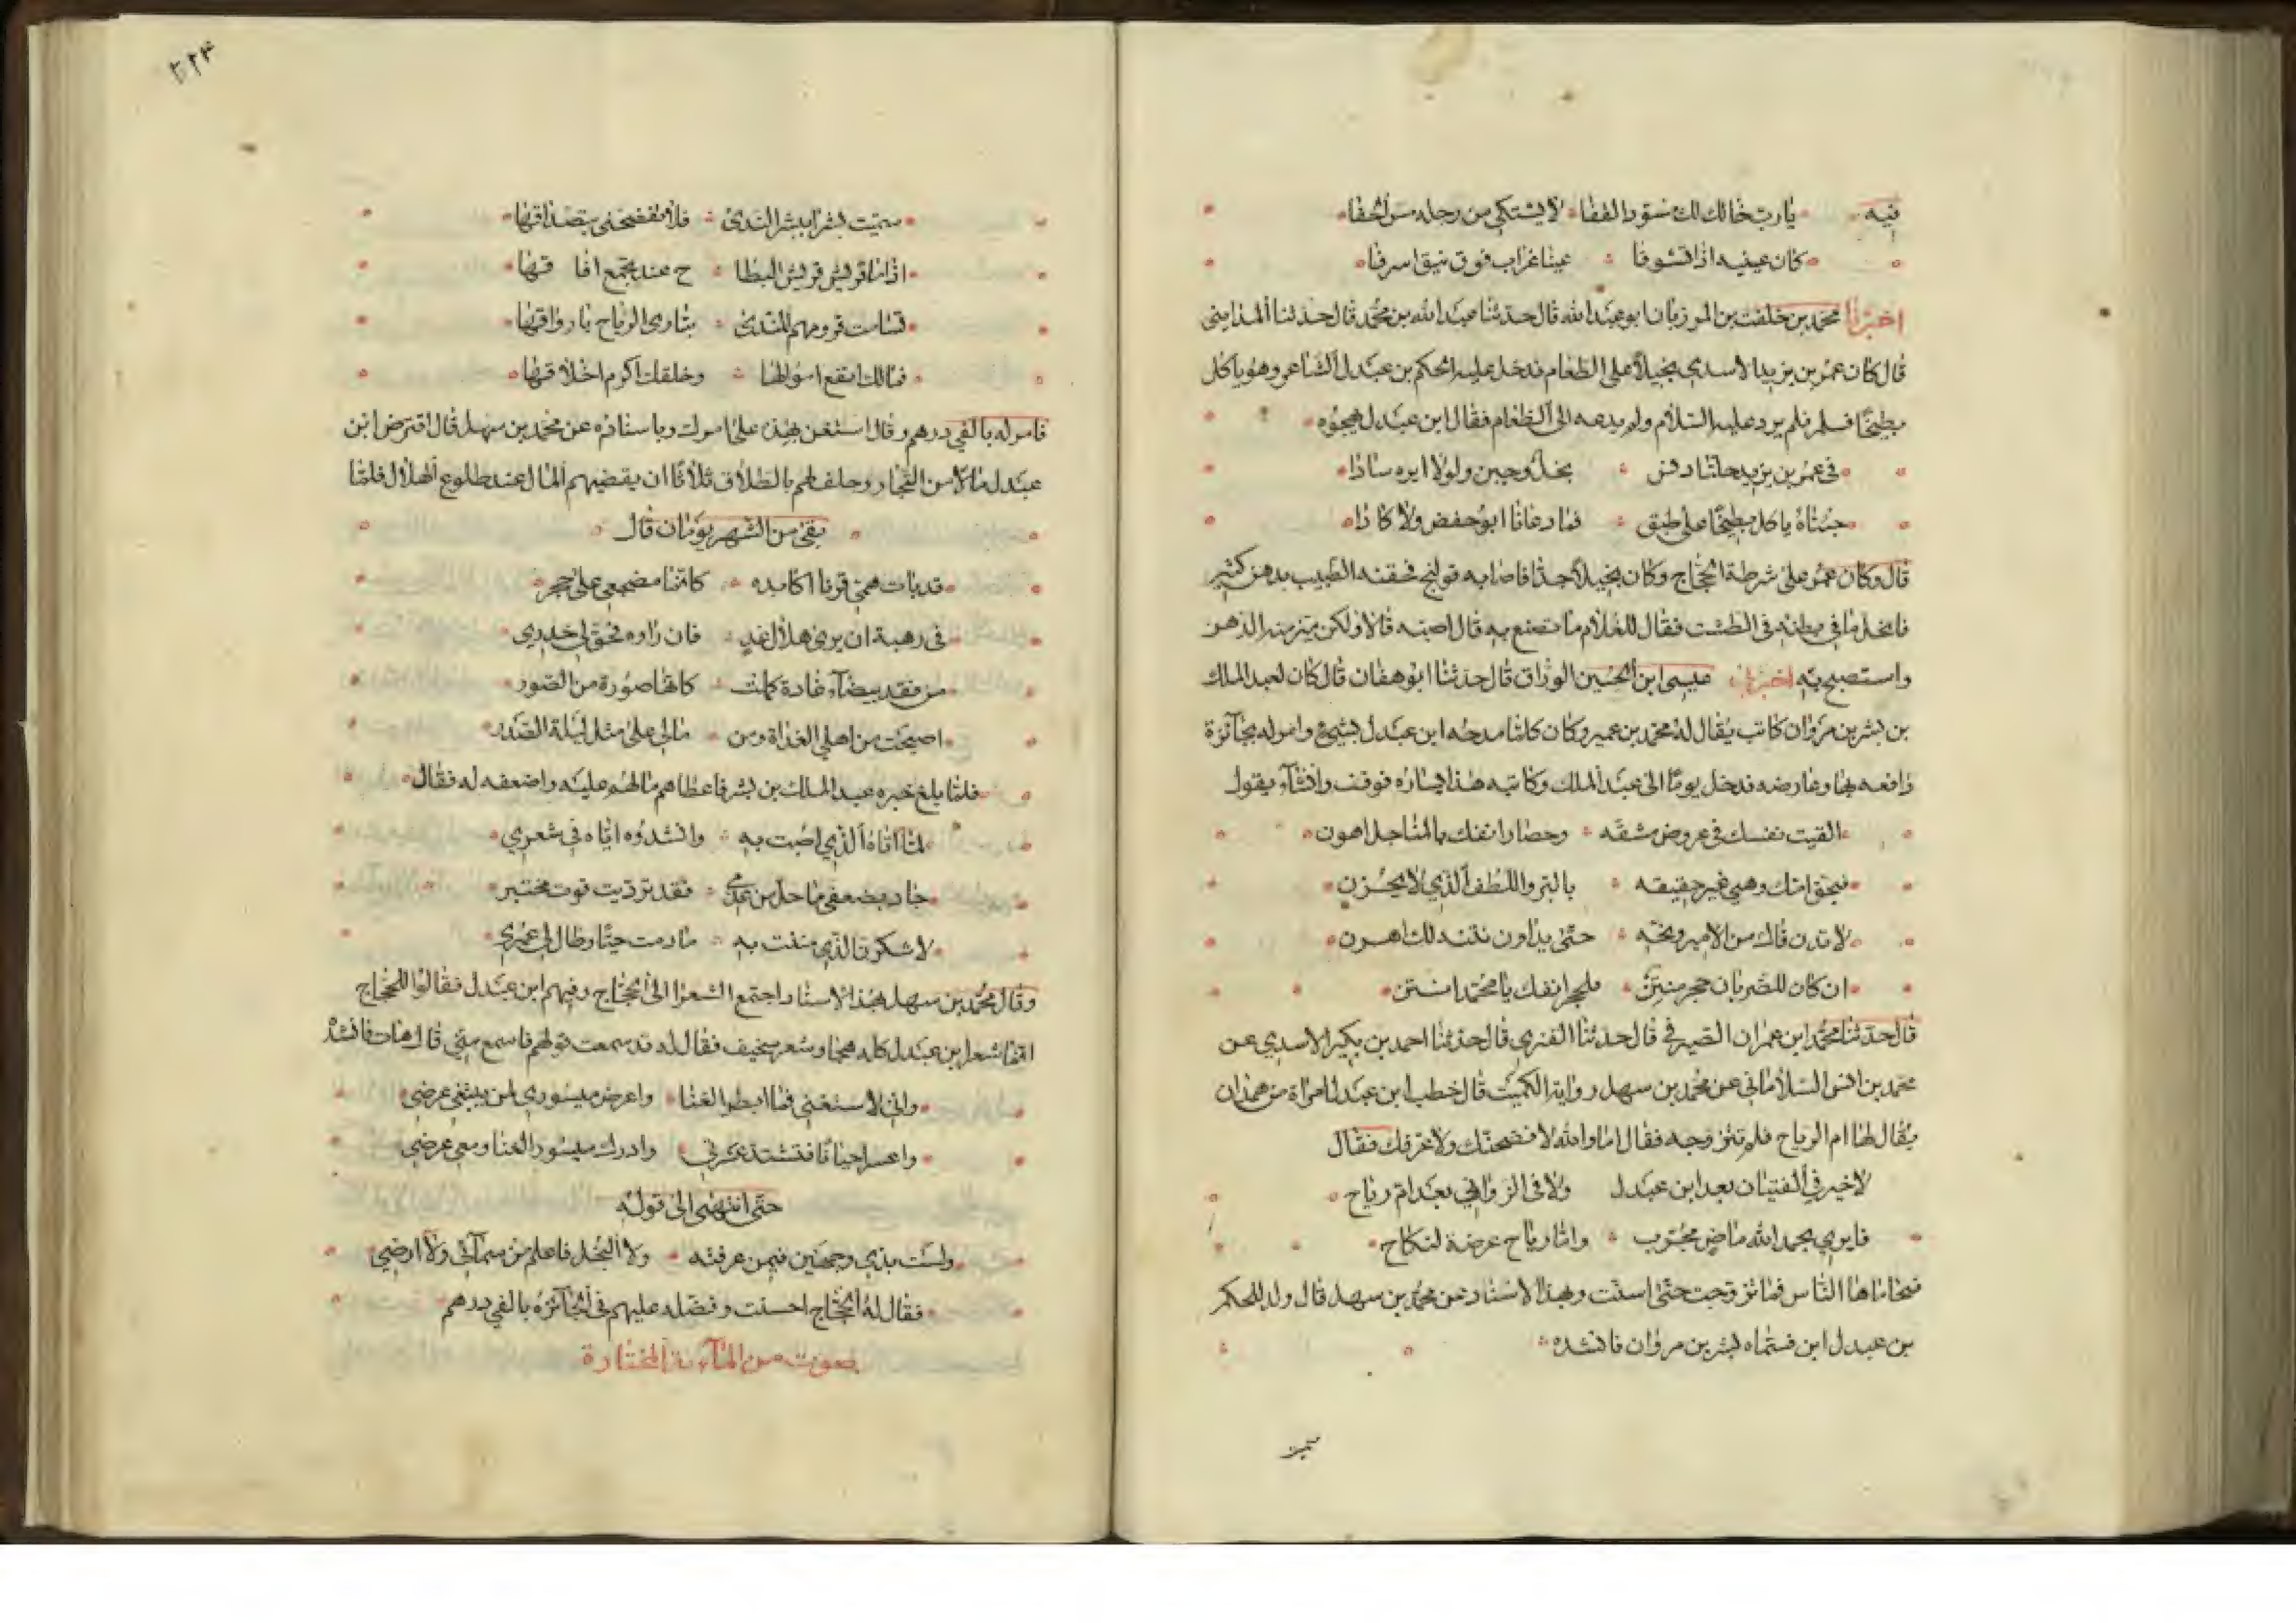 فيه يا رب خالك لك مسود القفا لا يشتكي من رجله مس الحفا
كان عينيه اذا تشوفا عينا غراب فوق نيق اسرفا
اخبرنا محمد بن خلف بن المرزبان ابو عبد الله قال حدثنا عبد الله بن محمد قال حدثنا المدايني
قال كان عمر بن يزيد الاسدي بخيلا على الطعام فدخل عليه الحكم بن عبدل الشاعر وهو ياكل
بطيخا فسلم فلم يرد عليه السلام ولم يدعه الى الطعام فقال ابن عبدل يهجوه
في عمر بن يزيد خلتا دنس بخل وجبن ولولا ايره سادا
جئناه ياكل بطيخا على طبق فما دعانا ابو حفص ولا كادا
قال وكان عمر على شرطة الحجاج وكان بخيلا جدا فاصابه قولنج فحقنه الطبيب بدهن كثير
فانحل ما في بطنه في الطشت فقال للغلام ما تصنع به قال اصبه قال لا ولكن ميز منه الدهن
واستصبح به اخبرني عيسى ابن الحسين الوراق قال حدثنا ابو هفان قال كان لعبد الملك
بن بشر بن مروان كاتب يقال له محمد بن عمير وكان كلما مدحه ابن عبدل بشيئ وامر له بجائزة
دافعه بها وعارضه فدخل يوما الى عبد الملك وكاتبه هذا يساره فوقف وانشاء يقول
القيت نفسك في عروض مشقه وحصاد انفك بالمناجل اهون
فبحق امك وهي غير حقيقه بالبر واللطف الذي لا يحزن
لا تدن فاك من الامير ونحه حتى يداوي نتنه لك اهرن
ان كان للضربان جحر منتن فلجحر انفك يا محمد انتن
قال حدثنا محمد ابن عمران الصيرفي قال حدثنا العنزي قال حدثنا احمد بن بكير الاسدي عن
محمد بن انس السلاماني عن محمد بن سهل رواية الكميت قال خطب ابن عبدل امراة من همدان
يقال لها ام الرياح فلم تتزوجه فقال اما والله لافضحنك ولاعرفك فقال
لا خير في الفتيان بعد ابن عبدل ولا في الزواني بعد ام رياح
فايري بحمد الله ماض مجرب وام رياح عرضة لنكاح
فتحاماها الناس فما تزوجت حتى اسنت وبهذا الاسناد عن محمد بن سهل قال ولد للحكم
بن عبدل ابن فسماه بشر بن مروان فانشده
٢٢٤
سميت بشرا ببشر الندى فلا تفضحني بتصداقها
اذا ما قريش قريش البطا ح عند تجمع افا قها
تسامت قرومهم للندى يباري الرياح باروواقها
فمالك انفع اموالها وخلقك اكرم اخلاقها
فامر له بالفي درهم وقال استعن بهذه على امورك وباسناده عن محمد بن سهل قال اقترض ابن
عبدل مالا من التجار وحلف لهم بالطلاق ثلاثا ان يقضيهم المال عند طلوع الهلال فلما
بقي من الشهر يومان قال
قد بات همي قرنا اكابده كانما مضجعي على حجر
في رهبة ان يرى هلال غد فان راوه فحق لي حذري
من فقد بيضاء غادة كملت كانها صورة من الصور
اصبحت من اهلي الغداة ومن مالي على مثل ليلة الصدر
فلما بلغ خبره عبد الملك بن بشر فاعطاهم ما لهم عليه واضعفه له فقال
لما اتاه الذي اصبت به وانشدوه اياه في شعري
جاد بضعفي ما حل من
لاشكرن الذي مننت به ما دمت حيا وطال لي عمري
وقال محمد بن سهل بهذا الاسناد اجتمع الشعرا الى الحجاج وفيهم ابن عبدل فقالوا للحجاج
انما شعر ابن عبدل كله هجا وشعر سخيف فقال له قد سمعت قولهم فاسمع مني قال هات فانشد
واني لاستغني فما ابطر الغنا واعرض ميسوري لمن يبتغي عرضي
واعسر احيانا فتشتد عسرتي وادرك ميسور الغنا ومعي عرضي
حتى انتهى الى قوله
ولست بذي وجهين فيمن عرفته ولا البخل فاعلم من سمائي ولا ارضي
فقال له الحجاج احسنت وفضله عليهم في الجائزه بالفي درهم
صوت من المائة المختارة